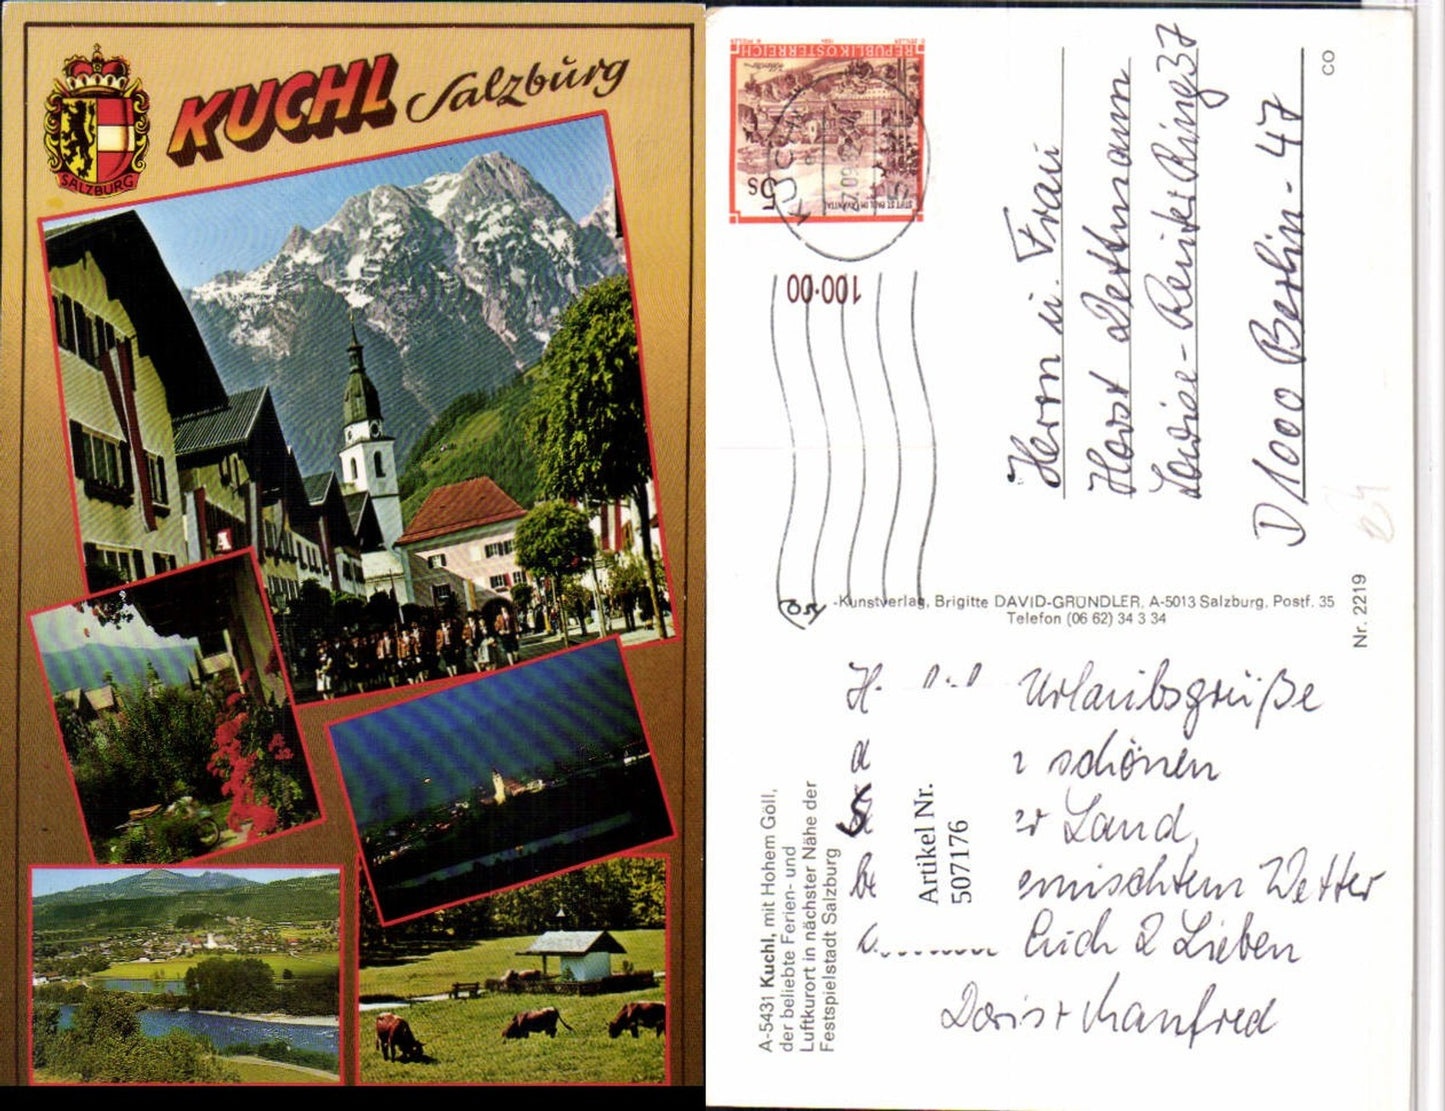 KUCHL Salzburg
SALZBURG
REPUBLIK ÖSTERREICH
5 S
STIFT ST. PAUL IM LAVANTTAL
100·00
Herrn u. Frau
Horst Dettmann
Louise-Reuter Ring 37
D 1000 Berlin - 47
CO
Nr. 2219
-Kunstverlag, Brigitte DAVID-GRÜNDLER, A-5013 Salzburg, Postf. 35
Telefon (06 62) 34 3 34
A-5431 Kuchl, mit Hohem Göll,
der beliebte Ferien- und
Luftkurort in nächster Nähe der
Festspielstadt Salzburg
Artikel Nr.
507176
Urlaubsgrüße
schönen
Land,
Wetter
Euch 2 Lieben
Doris + Manfred